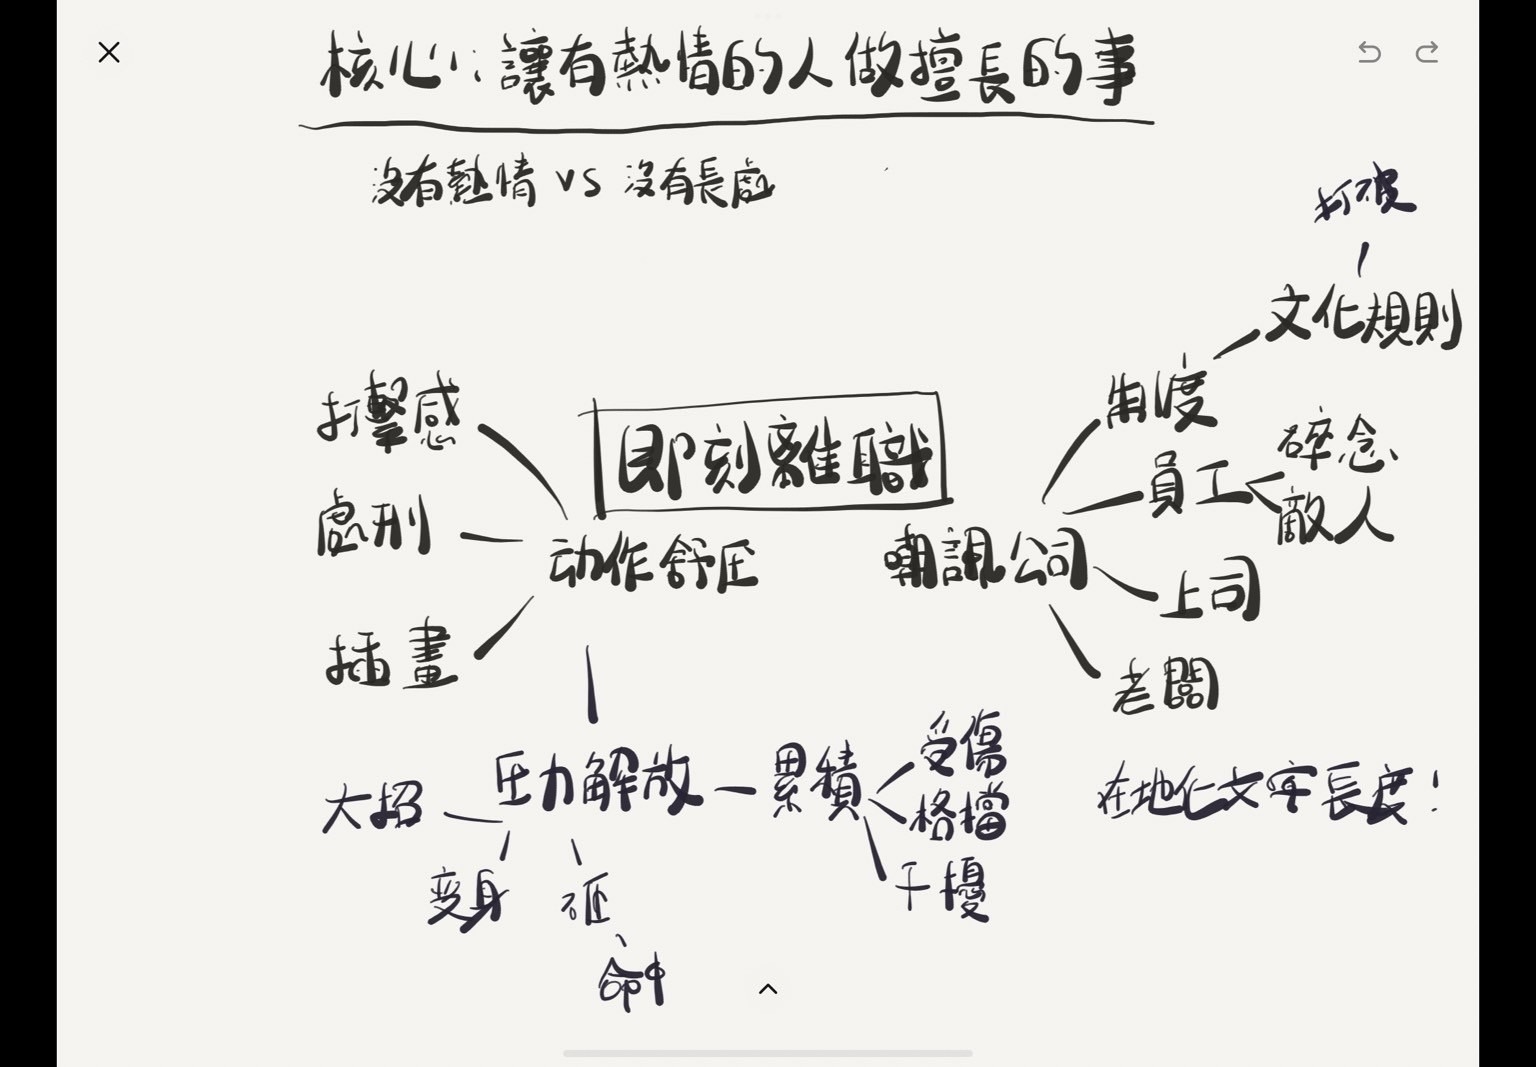 核心：讓有熱情的人做擅長的事
沒有熱情 VS 沒有長處
打破
文化規則
制度
打擊感
即刻離職
員工
碎念
敵人
處刑
动作舒压
嘲諷公司
上司
插畫
老闆
大招
压力解放
累積
受傷
格擋
干擾
在地化文字長度！
变身
砸
命中